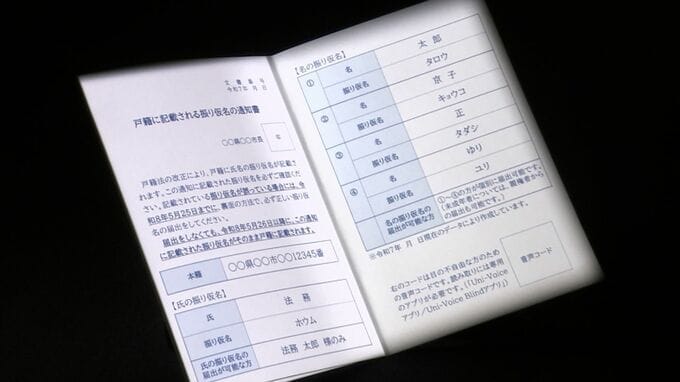 文書番号
令和7年 月 日
戸籍に記載される振り仮名の通知書
〇〇県〇〇市長
戸籍法の改正により、戸籍に氏名の振り仮名が記載さ
れます。この通知に記載された振り仮名を必ずご確認くだ
さい。記載されている振り仮名が誤っている場合には、令
和8年5月25日までに、裏面の方法で、必ず正しい振り仮
名の届出をしてください。
届出をしなくても、令和8年5月26日以降に、この通知
に記載された振り仮名がそのまま戸籍に記載されます。
本籍 〇〇県〇〇市〇〇12345番
【氏の振り仮名】
氏 法務
振り仮名 ホウム
氏の振り仮名の
届出が可能な方 法務 太郎 様のみ
【名の振り仮名】
① 名 太郎
振り仮名 タロウ
② 名 京子
振り仮名 キョウコ
③ 名 正
振り仮名 タダシ
④ 名 ゆり
振り仮名 ユリ
名の振り仮名の
届出が可能な方
①~④の方が個別に届出可能です。
(未成年者については、親権者から
の届出も可能です。)
※令和7年 月 日現在のデータにより作成しています。
右のコードは目の不自由な方のため
の音声コードです。読み取りには専用
のアプリが必要です。(「Uni-Voice
アプリ/Uni-Voice Blindアプリ」)
音声コード